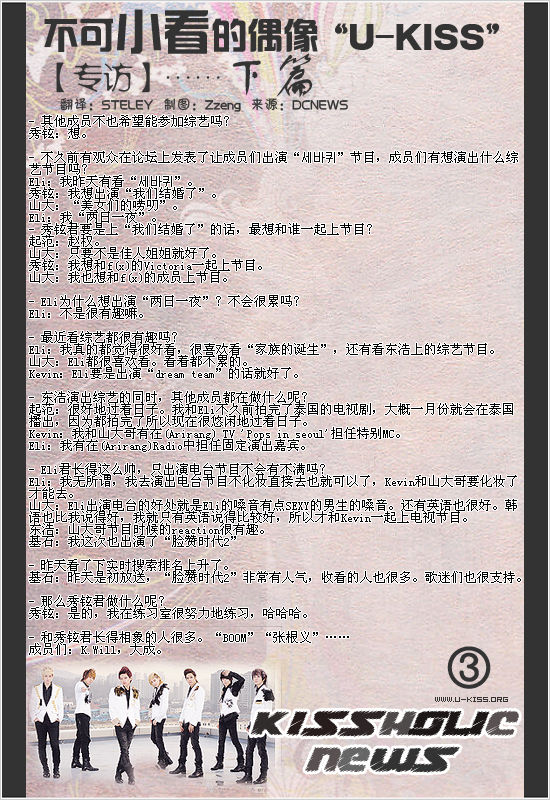 不可小看的偶像“U-KISS”
【专访】……下篇
翻译：STELEY 制图：Zzeng 来源：DCNEWS
- 其他成员不也希望能参加综艺吗？
秀铉：想。
- 不久前有观众在论坛上发表了让成员们出演“세바퀴”节目，成员们有想演出什么综
艺节目吗？
Eli：我昨天有看“세바퀴”。
秀铉：我想出演“我们结婚了”。
山大：“美女们的唠叨”。
Eli：我“两日一夜”。
- 秀铉君要是上“我们结婚了”的话，最想和谁一起上节目？
起范：赵权。
山大：只要不是佳人姐姐就好了。
秀铉：我想和f(x)的Victoria一起上节目。
山大：我也想和f(x)的成员上节目。
- Eli为什么想出演“两日一夜”？不会很累吗？
Eli：不是很有趣嘛。
- 最近看综艺都很有趣吗？
Eli：我真的都觉得很好看，很喜欢看“家族的诞生”，还有看东浩上的综艺节目。
山大：Eli都很喜欢看。看着都不累的。
Kevin：Eli要是出演“dream team”的话就好了。
- 东浩演出综艺的同时，其他成员都在做什么呢？
起范：很好地过着日子。我和Eli不久前拍完了泰国的电视剧，大概一月份就会在泰国
播出，因为都拍完了所以现在很悠闲地过着日子。
Kevin：我和山大哥有在(Arirang) TV 'Pops in seoul'担任特别MC。
Eli：我有在(Arirang)Radio中担任固定演出嘉宾。
- Eli君长得这么帅，只出演电台节目不会有不满吗？
Eli：我无所谓，我去演出电台节目不化妆直接去也就可以了，Kevin和山大哥要化妆了
才能去。
山大：Eli出演电台的好处就是Eli的嗓音有点SEXY的男生的嗓音。还有英语也很好。韩
语也比我说得好，我就只有英语说得比较好，所以才和Kevin一起上电视节目。
东浩：山大哥节目时候的reaction很有趣。
基石：我这次也出演了“脸赞时代2”
- 昨天看了下实时搜索排名上升了。
基石：昨天是初放送，“脸赞时代2”非常有人气，收看的人也很多。歌迷们也很支持。
- 那么秀铉君做什么呢？
秀铉：是的，我在练习室很努力地练习，哈哈哈。
- 和秀铉君长得相象的人很多。“BOOM”“张根义”……
成员们：K.Will，大成。
③
WWW.U-KISS.ORG
KISSHOLIC
NEWS